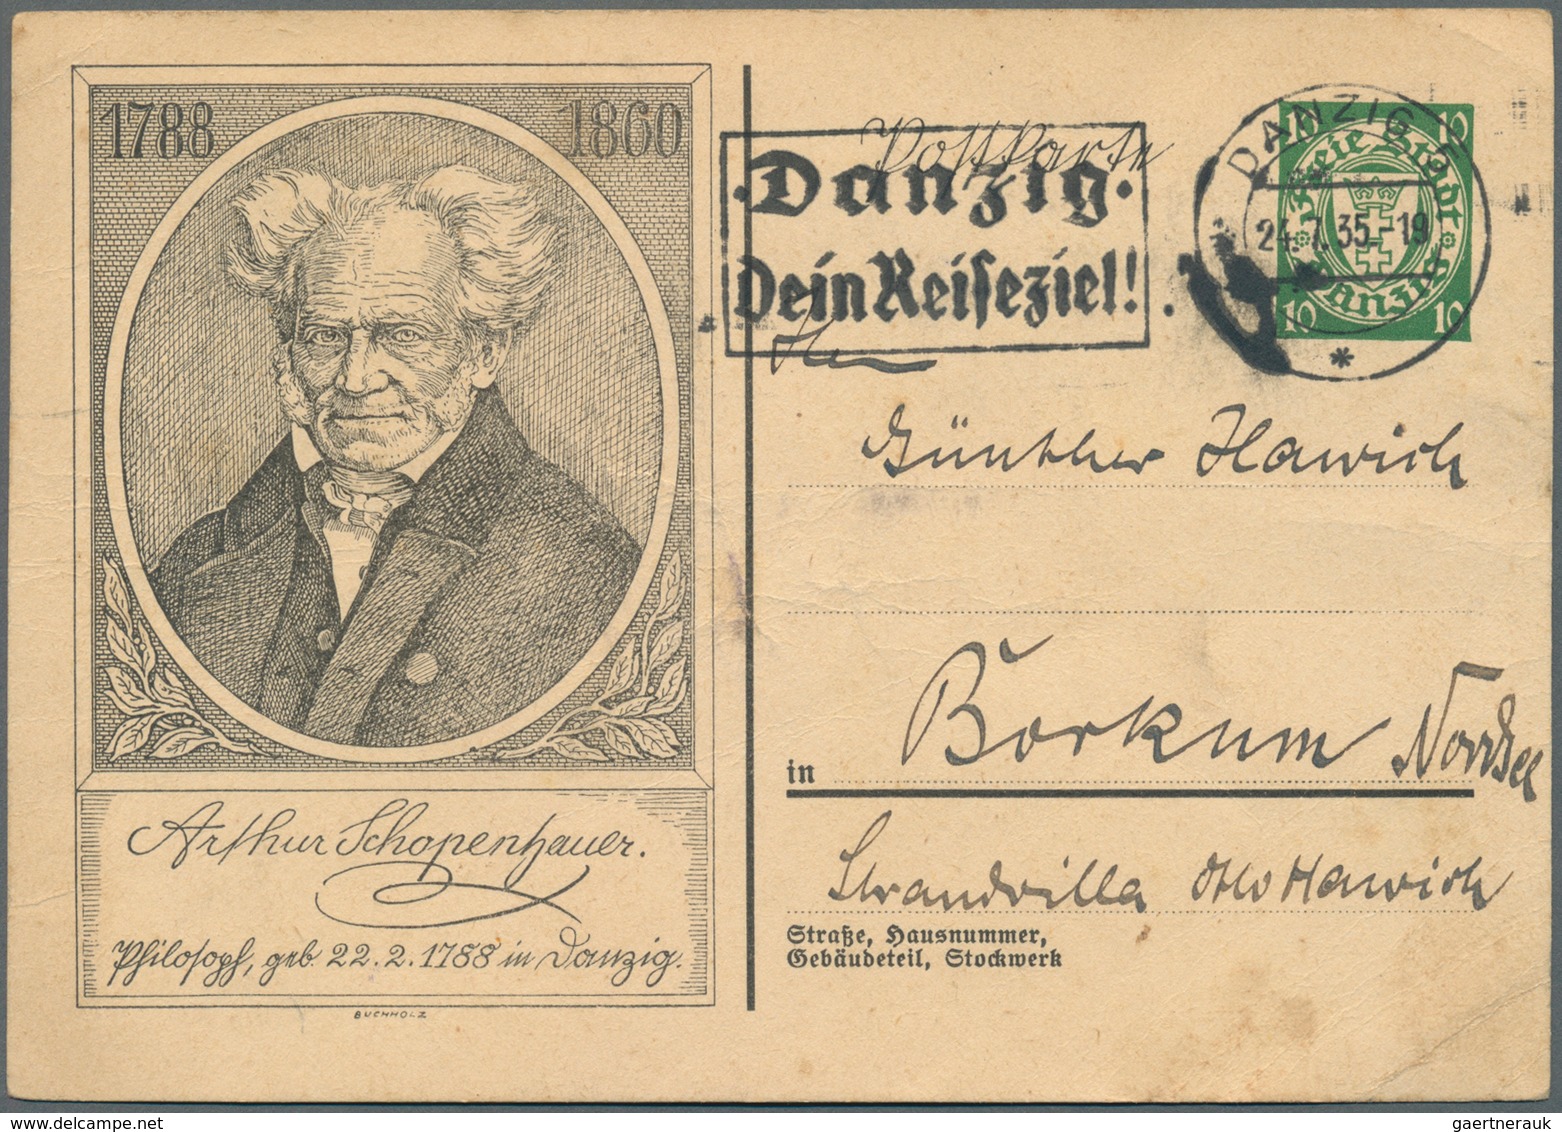 1788 1860
Arthur Schopenhauer.
Philosoph, geb. 22.2.1788 in Danzig.
BUCHHOLZ
Postkarte
Danzig.
Dein Reiseziel!
DANZIG 5
24.7.35-19
*
10 10
Freie Stadt
Danzig
10 10
Günther Hawich
in Borkum Nordsee
Strandvilla Otto Hawich
Straße, Hausnummer,
Gebäudeteil, Stockwerk
gaertnerauk @ www.delcampe.net